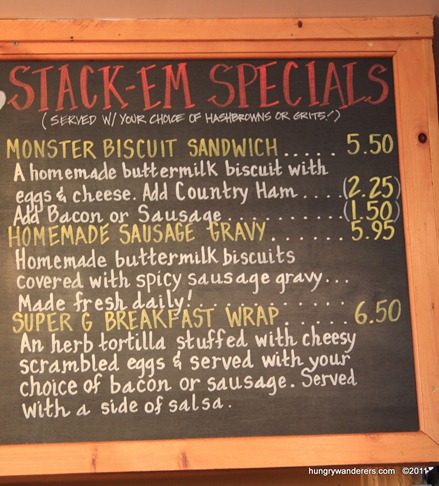 STACK-EM SPECIALS
(SERVED W/ YOUR CHOICE OF HASHBROWNS OR GRITS!)
MONSTER BISCUIT SANDWICH..... 5.50
A homemade buttermilk biscuit with
eggs & cheese. Add Country Ham .....(2.25)
Add Bacon or Sausage ............(1.50)
HOMEMADE SAUSAGE GRAVY....... 5.95
Homemade buttermilk biscuits
covered with spicy sausage gravy...
Made fresh daily!............
SUPER G BREAKFAST WRAP ..... 6.50
An herb tortilla stuffed with cheesy
scrambled eggs & served with your
choice of bacon or sausage. Served
with a side of salsa.
hungrywanderers.com ©2011